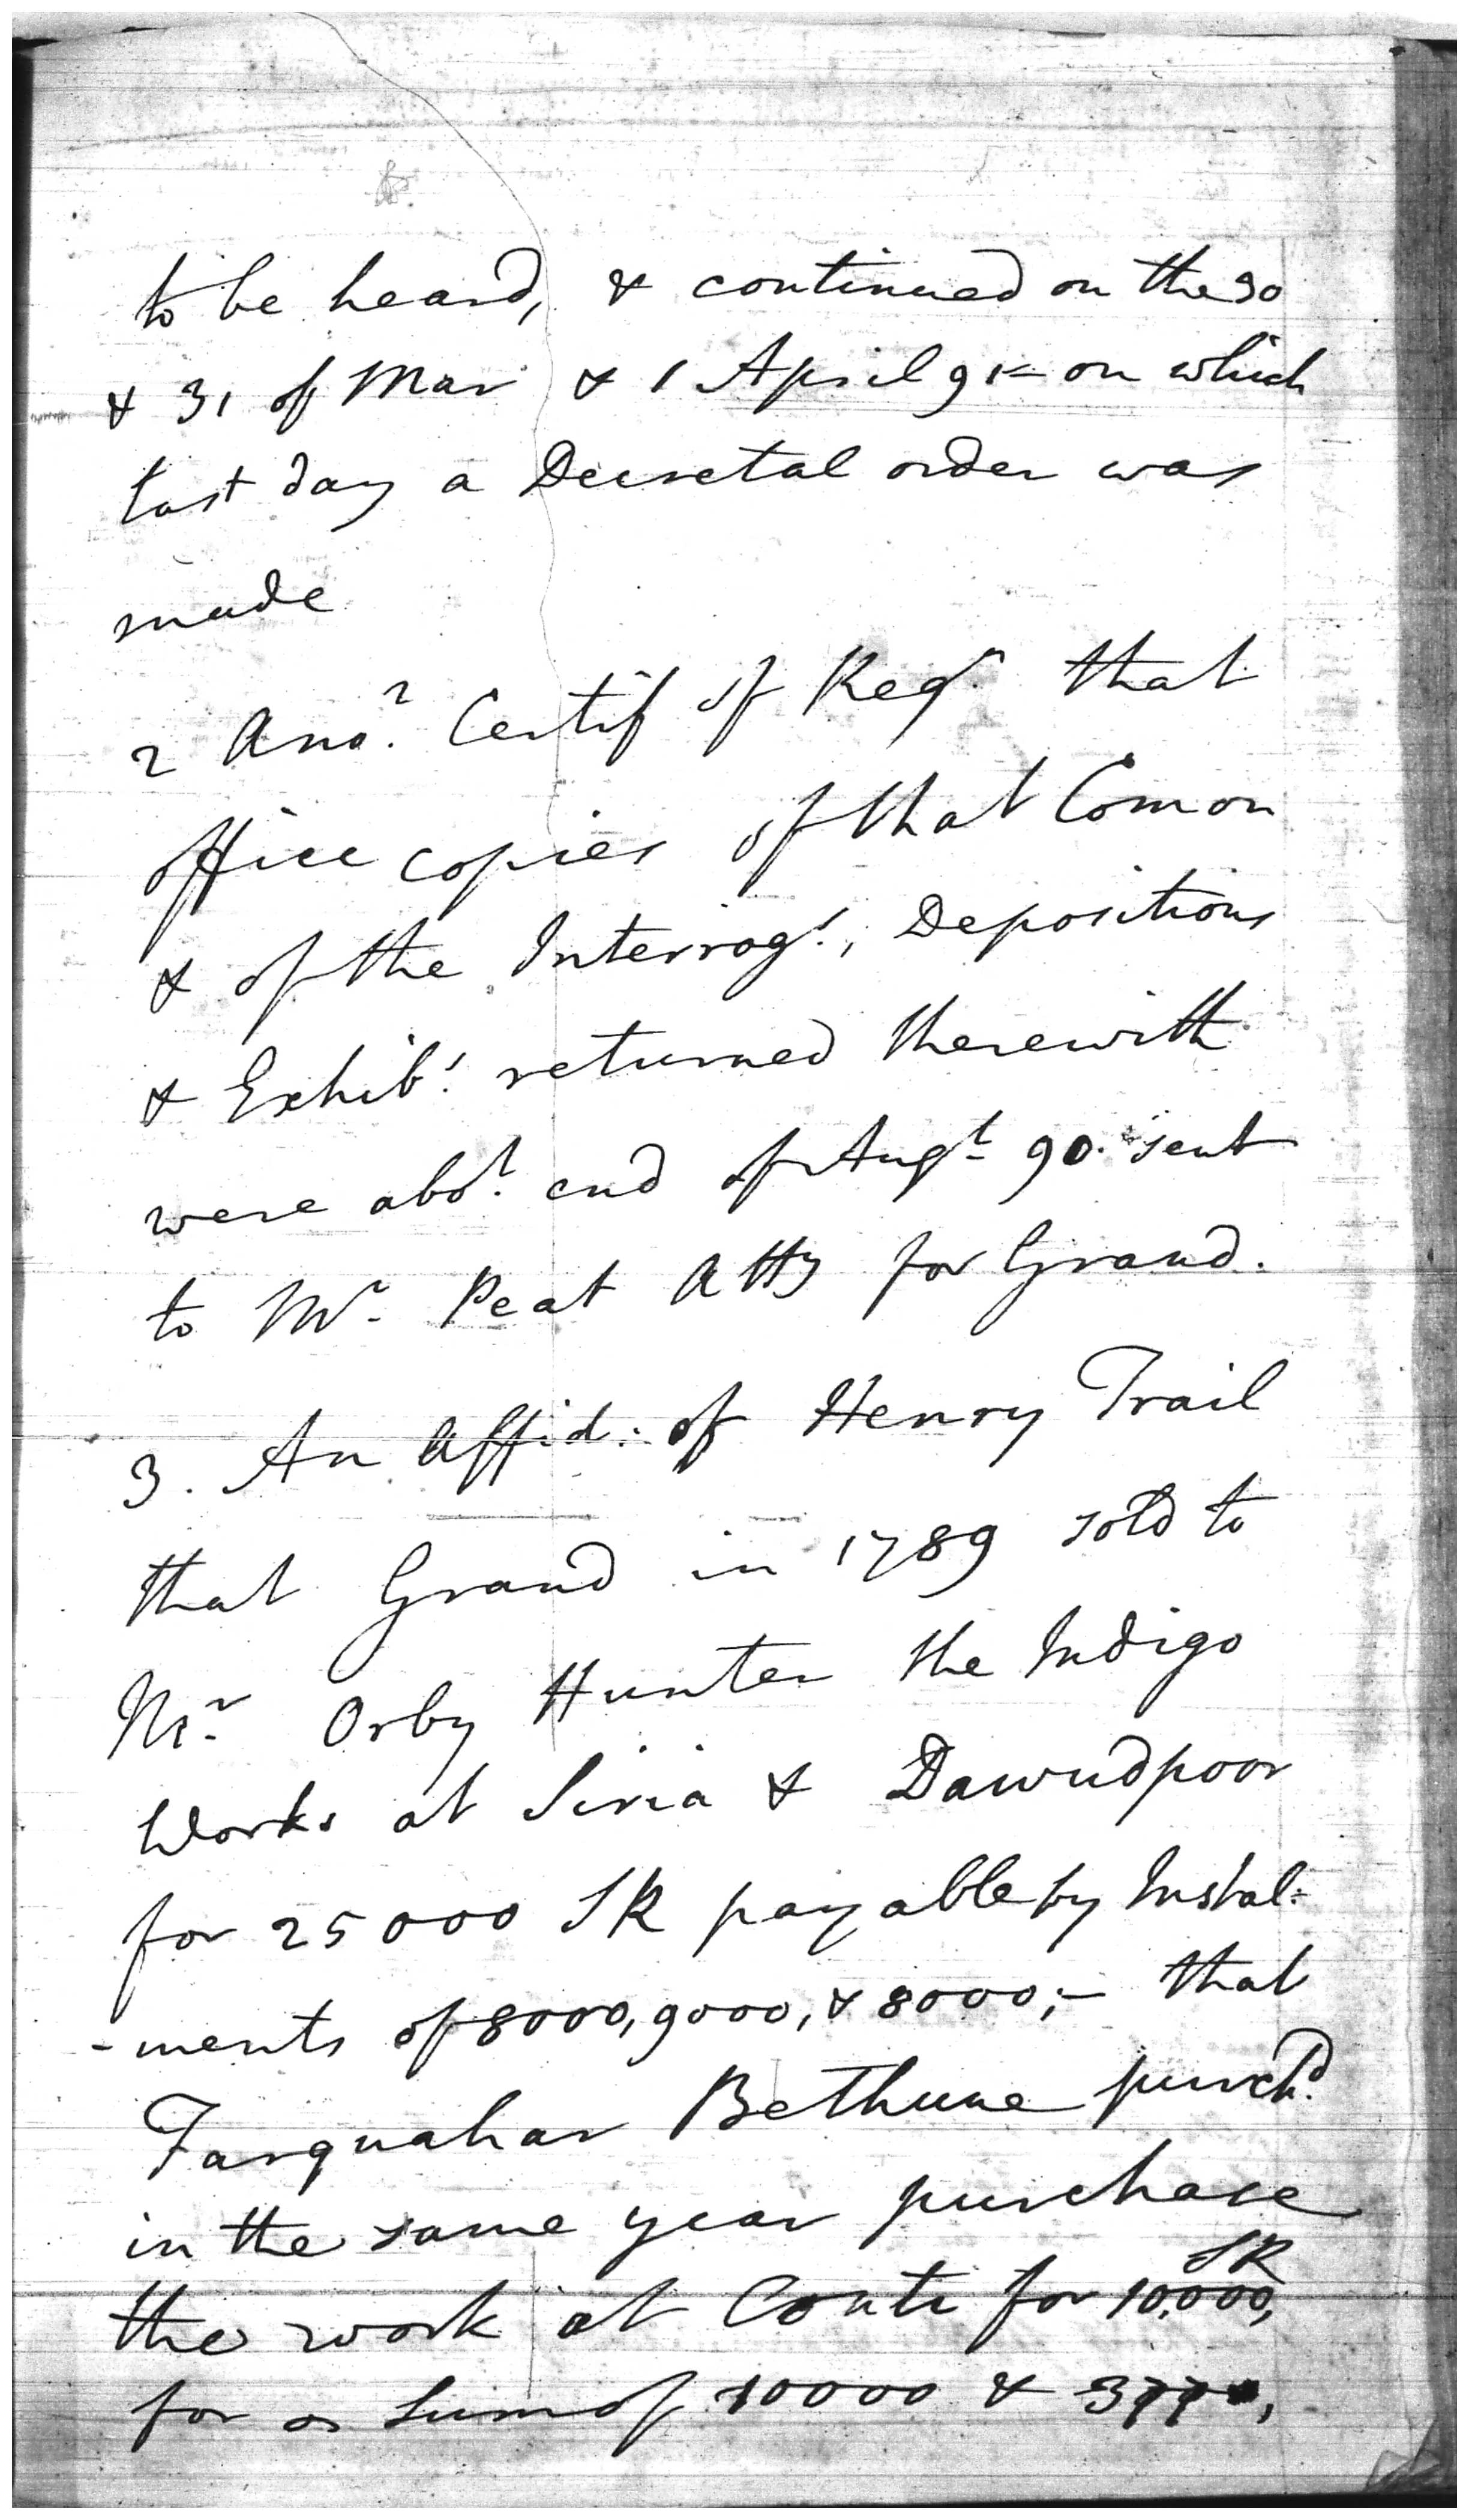 to be heard, & continued on the 30
& 31 of Mar & 1 April 91 – on which
last day a Decretal order was
made
2 Ano.r Certif of Reg.r that
office copies of that Comon
& of the Interrog.s, Depositions
& Exhib.s returned therewith
were abo.t end of Aug.t 90. sent
to Mr. Peat Atty for Grand.
3. An Affid: of Henry Trail
that Grand in 1789 sold to
Mr. Orby Hunter the Indigo
Works at Siria & Dawudpoor
for 25000 SR payable by Instal-
-ments of 8000, 9000, & 8000; – that
Farquahar Bethune purch.d
in the same year purchase
the work at Conti for 10,000, SR
for a Sum of 10000 &